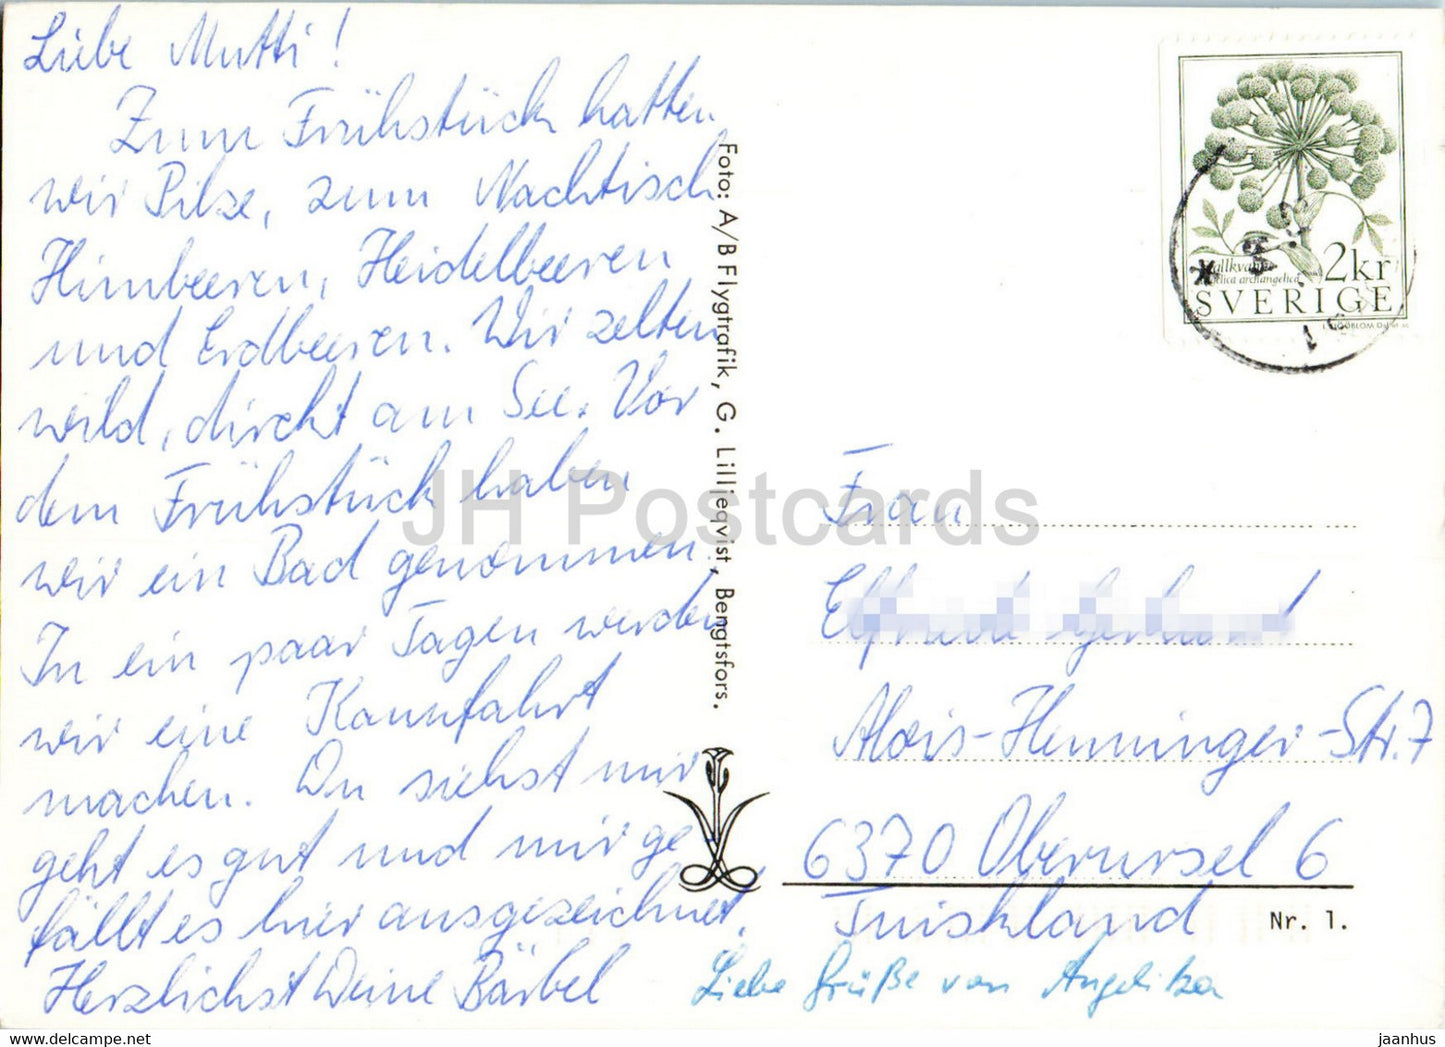 Liebe Mutti!
Zum Frühstück hatten
wir Pilze, zum Nachtisch
Himbeeren, Heidelbeeren
und Erdbeeren. Wir zelten
wild, direkt am See. Vor
dem Frühstück haben
wir ein Bad genommen.
In ein paar Tagen werden
wir eine Kanufahrt
machen. Du siehst mir
geht es gut und mir ge-
fällt es hier ausgezeichnet.
Herzlichst Deine Bärbel
Liebe Grüße von Angelika
Foto: A/B Flygtrafik, G. Lilljeqvist, Bengtsfors.
2kr
archangelica
SVERIGE
Frau
Alois-Henninger-Str. 7
6370 Oberursel 6
Tyskland
Nr. 1.
JH Postcards
https://www.jhpostcards.com
jaanhus